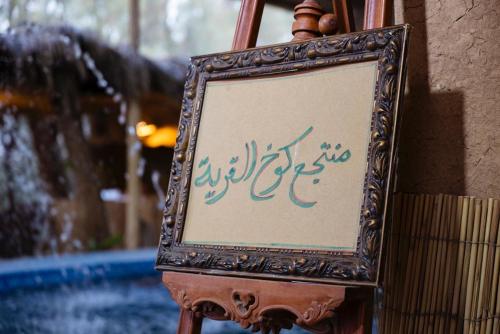 منتجع كوخ القرية